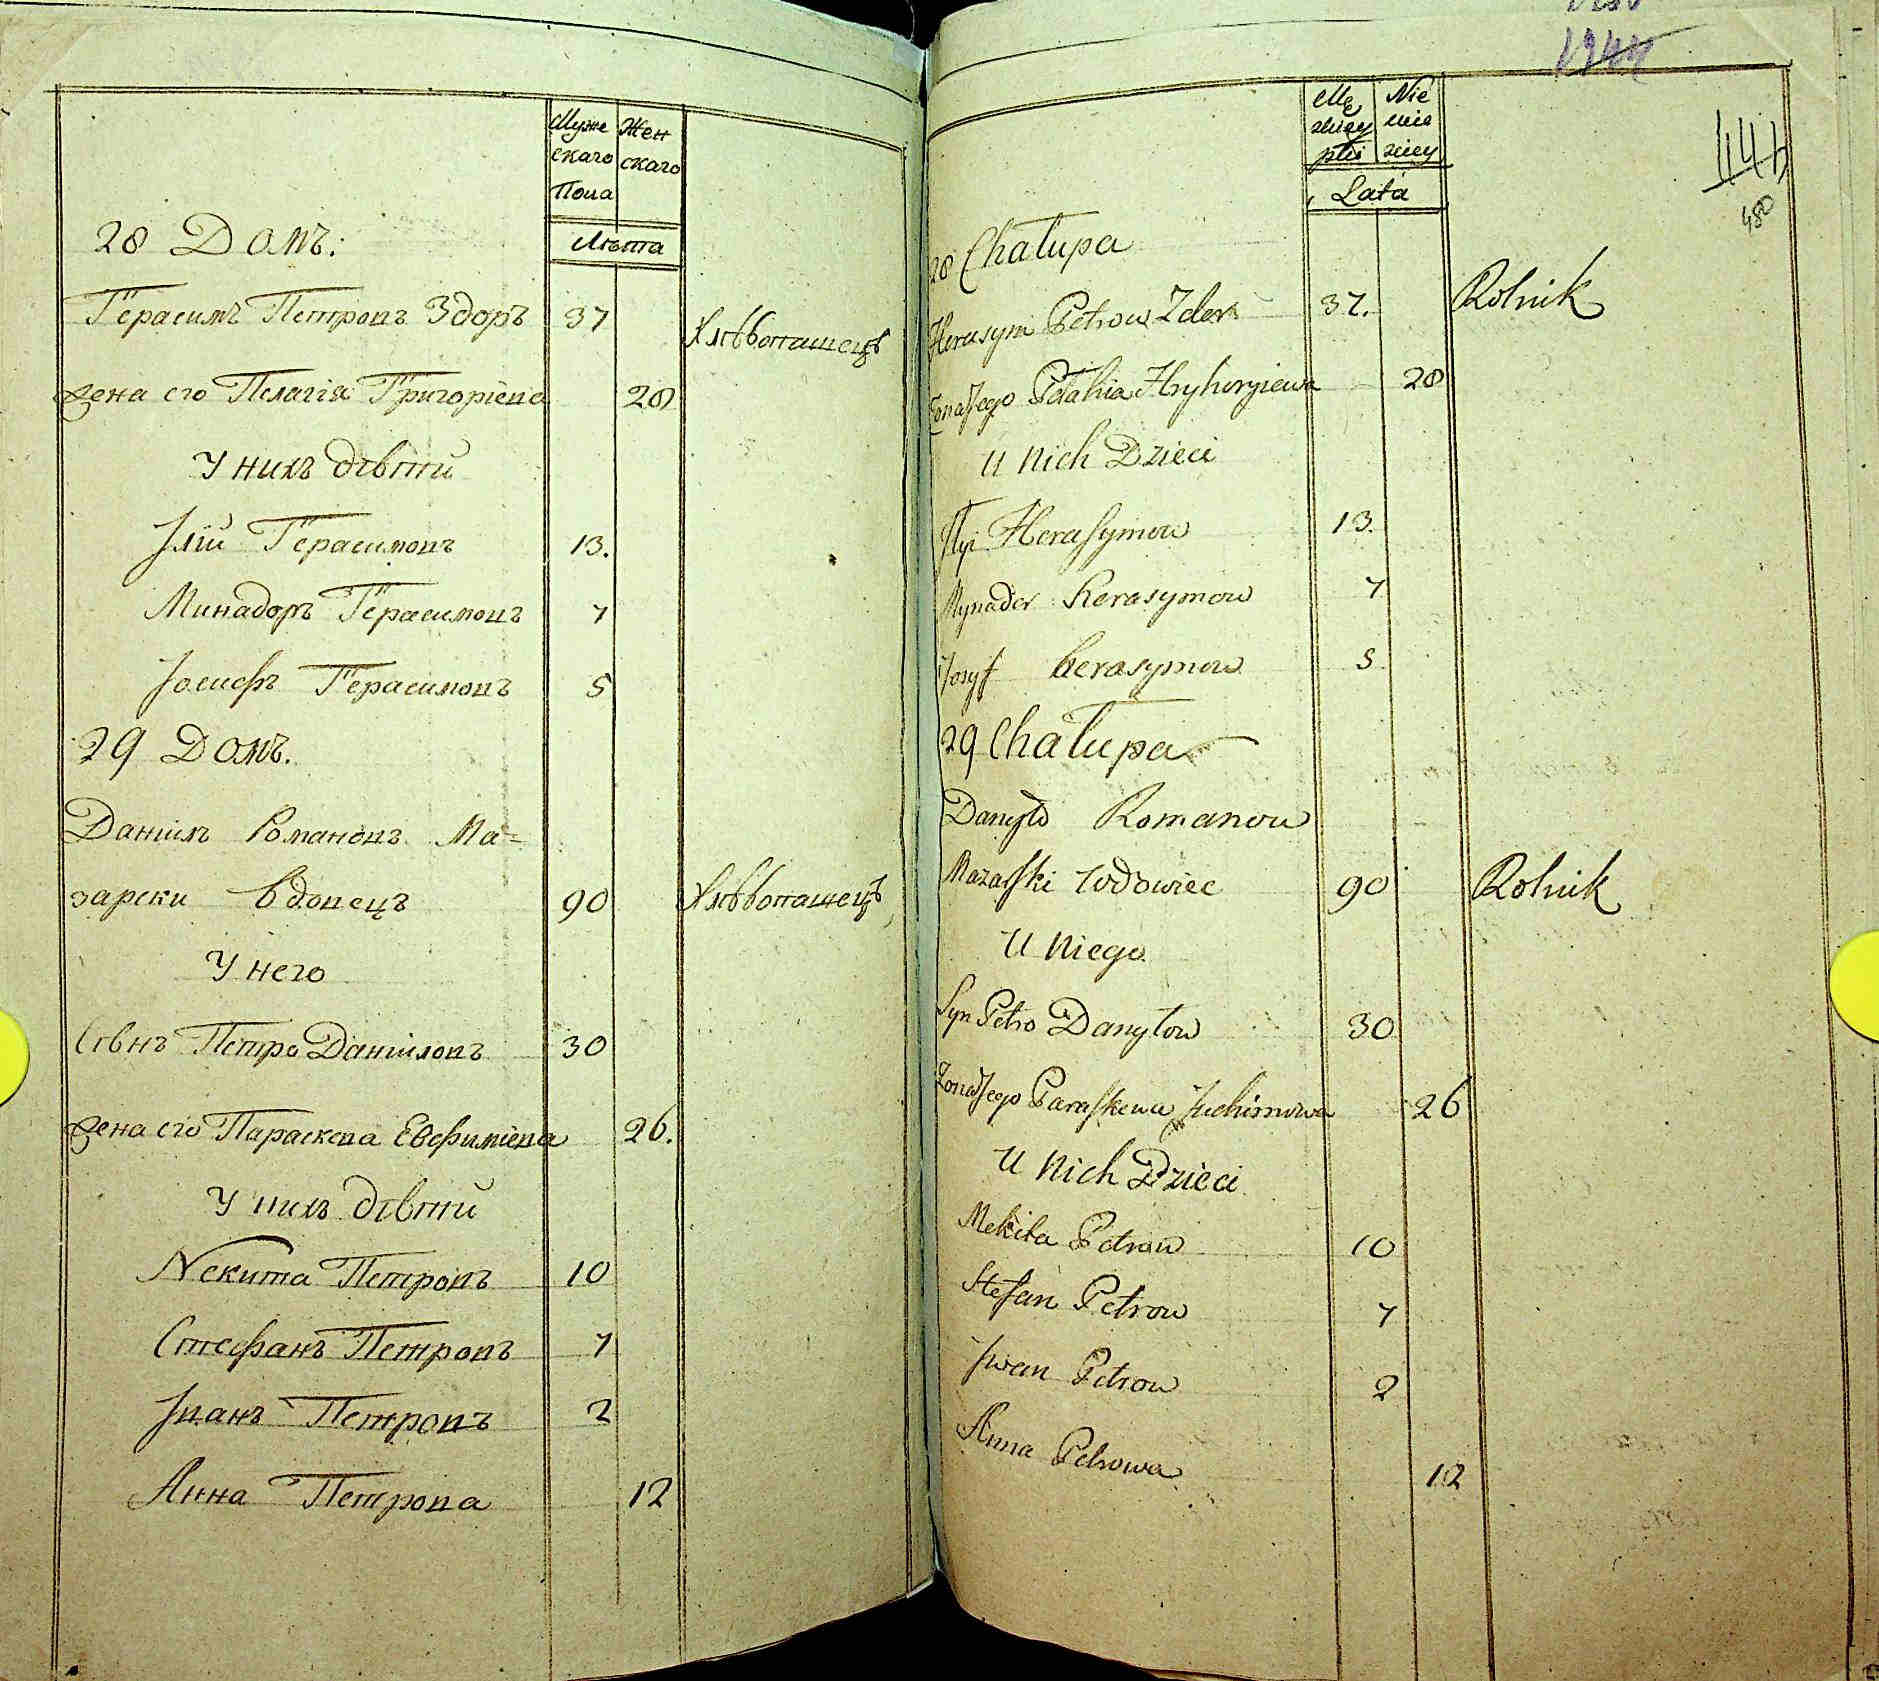 Муже Жен
скаго скаго
Пола
Лѣта
28 Домъ.
Герасимъ Петровъ Здоръ 37 Хлѣбопашецъ
жена его Пелагія Григоріева 28
У нихъ дѣти
Ілій Герасимовъ 13.
Минадоръ Герасимовъ 7
Іосифъ Герасимовъ 5
29 Домъ.
Даніилъ Романовъ Ма-
зарски вдовецъ 90 Хлѣбопашецъ
У него
Сынъ Петро Даніиловъ 30
жена его Параскева Евфиміева 26.
У нихъ дѣти
Некита Петровъ 10
Стефанъ Петровъ 7
Іванъ Петровъ 2
Анна Петрова 12
1944
480
Mę Nie
płci
Lata
28 Chałupa
Herasym Petrow Zder 37. Rolnik
Żona Jego Pelahia Hryhoryiewa 28
U Nich Dzieci
Ilyi Herasymow 13.
Mynador Herasymow 7
Josyf Herasymow 5
29 Chałupa
Danyło Romanow
Mazarski Wdowiec 90 Rolnik
U Niego
Syn Petro Danyłow 30
Żona Jego Paraskewa Juchimowa 26
U Nich Dzieci
Mekita Petrow 10
Stefan Petrow 7
Iwan Petrow 2
Anna Petrowa 12